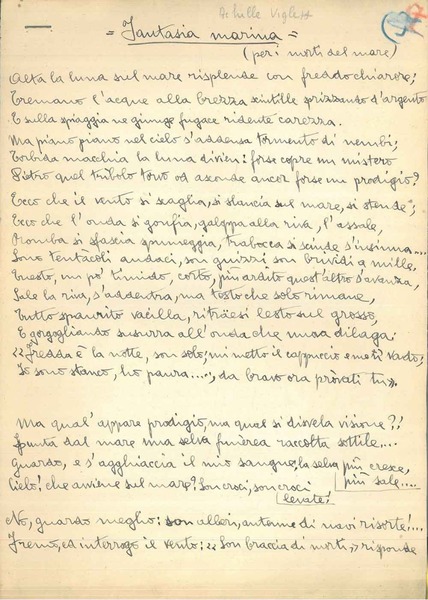 Achille
37
= Fantasia marina =
(per i morti del mare)
Alta la luna sul mare risplende con freddo chiarore;
Tremano l'acque alla brezza scintille sprizzando d'argento
E sulla spiaggia ne giunge fugace ridente carezza.
Ma piano piano nel cielo s'addensa tormento di nembi;
Torbida macchia la luna divien: forse copre un mistero
Dietro quel tribolo tono od asconde ancor forse un prodigio?
Ecco che il vento si scaglia, si slancia sul mare, si stende;
Ecco che l'onda si gonfia, galoppa alla riva, l'assale,
Piomba si sfascia spumeggia, trabocca si scinde s'insinua....
Sono tentacoli audaci, son guizzi son brividi a mille.
Questo, un po' timido, corto, più ardito quest'altro s'avanza,
Sale la riva, s'addentra, ma tosto che solo rimane,
Tutto spaurito vacilla, ritràesi lesto sul grosso,
E gorgogliando susurra all'onda che nuova dilaga:
"Fredda è la notte, son solo; mi metto il cappuccio e me ti vado;
Io sono stanco, ho paura....., da bravo ora pròvati tu".
Ma qual'appare prodigio, ma qual si disvela visione?!
Spunta dal mare una selva funèrea raccolta sottile....
Guardo, e s'agghiaccia il mio sangue, la selva più cresce,
più sale....
Cielo! che avviene sul mare? Son croci, son croci
levate!
No, guardo meglio: son alberi, antenne di navi risorte!....
Fremo, ed interrogo il vento: "Son braccia di morti," risponde